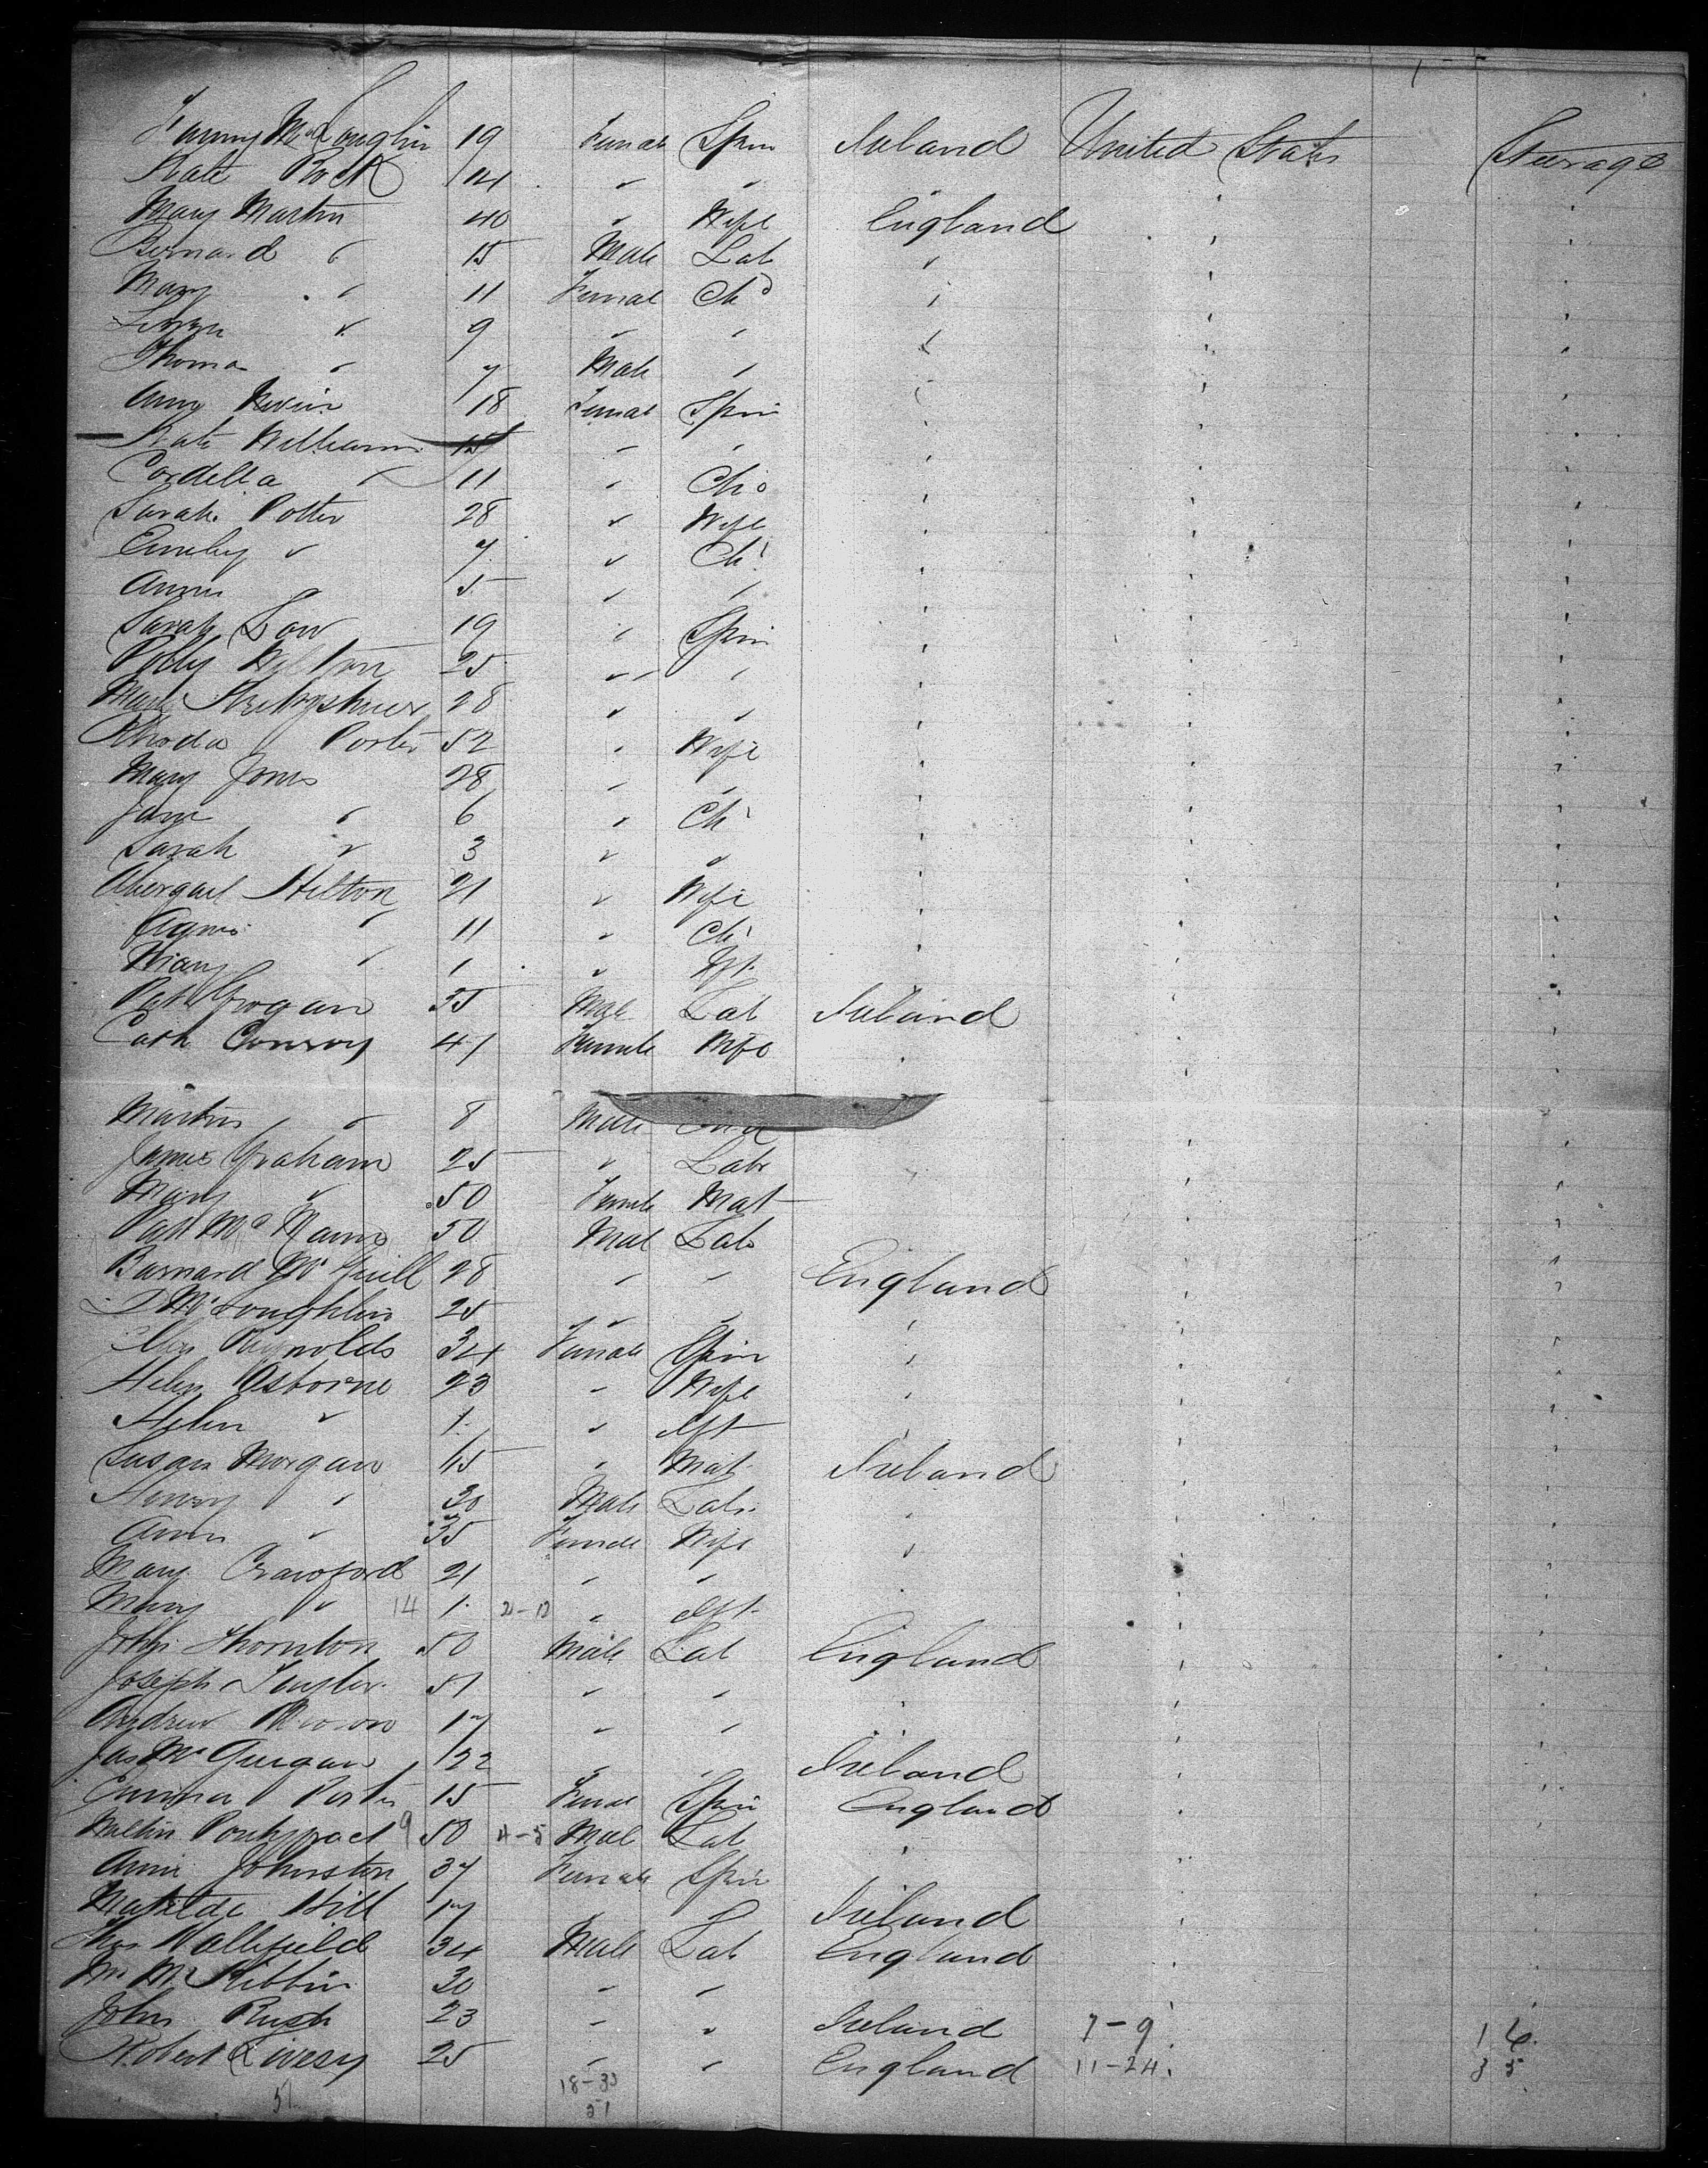 Fanny McLoughlin 19 Femal Spin Ireland United States Steerage
Kate Rock 21 " "
Mary Martin 40 " Wife England
Bernard " 15 Male Lab "
Mary " 11 Femal Chd "
" 9 " " "
Thomas " 7 Male " "
Ann 18 Femal Spin
Kate Williams 15 " "
Cordella " 11 " Chd
Sarah Potter 28 " Wife
Emily " 7 " Chd
Annie " 5 " "
Sarah Law 19 " Spin
Polly 25 " "
28 " "
Rhoda Porter 52 " Wife
Mary Jones 28 " "
Jane " 6 " Chd
Sarah " 3 " "
Abergail Hilton 21 " Wife
Agnes " 11 " Chd
Mary " 1 " Ift
Pat Grogan 35 Male Lab Ireland
Cath Conroy 41 Female Wife
Martin " 8 Male
James Graham 25 " Labr
Mary " 50 Female Mat
Patk 50 Mal Lab
Barnard 28 " " England
McLoughlin 25 " " "
Ellen Reynolds 34 Female Spin "
Helen Osborne 23 " Wife "
Helen " 1 " Ift
Susan Morgan 45 " Mat Ireland
Henry " 20 Male Labr "
Ann " 35 Female Wife "
Mary Crawford 21 " "
Mary " 14 1 2-12 " Ift
John Thornton 50 Male Lab England
Joseph Taylor 51 " " "
Andrew 17 " "
Jas McGurgan 22 " " Ireland
Emma Porter 15 Femal Spin England
9 50 4-5 Male Lab "
Annie Johnston 37 Female Spin
Matilda Hill 17 " " Ireland
Thos 34 Male Lab England
Wm McKibbin 30 " "
John Rush 23 " " Ireland 7-9 1 6
Robert Livesy 25 " " England 11-24 3 5
51 18-33
21